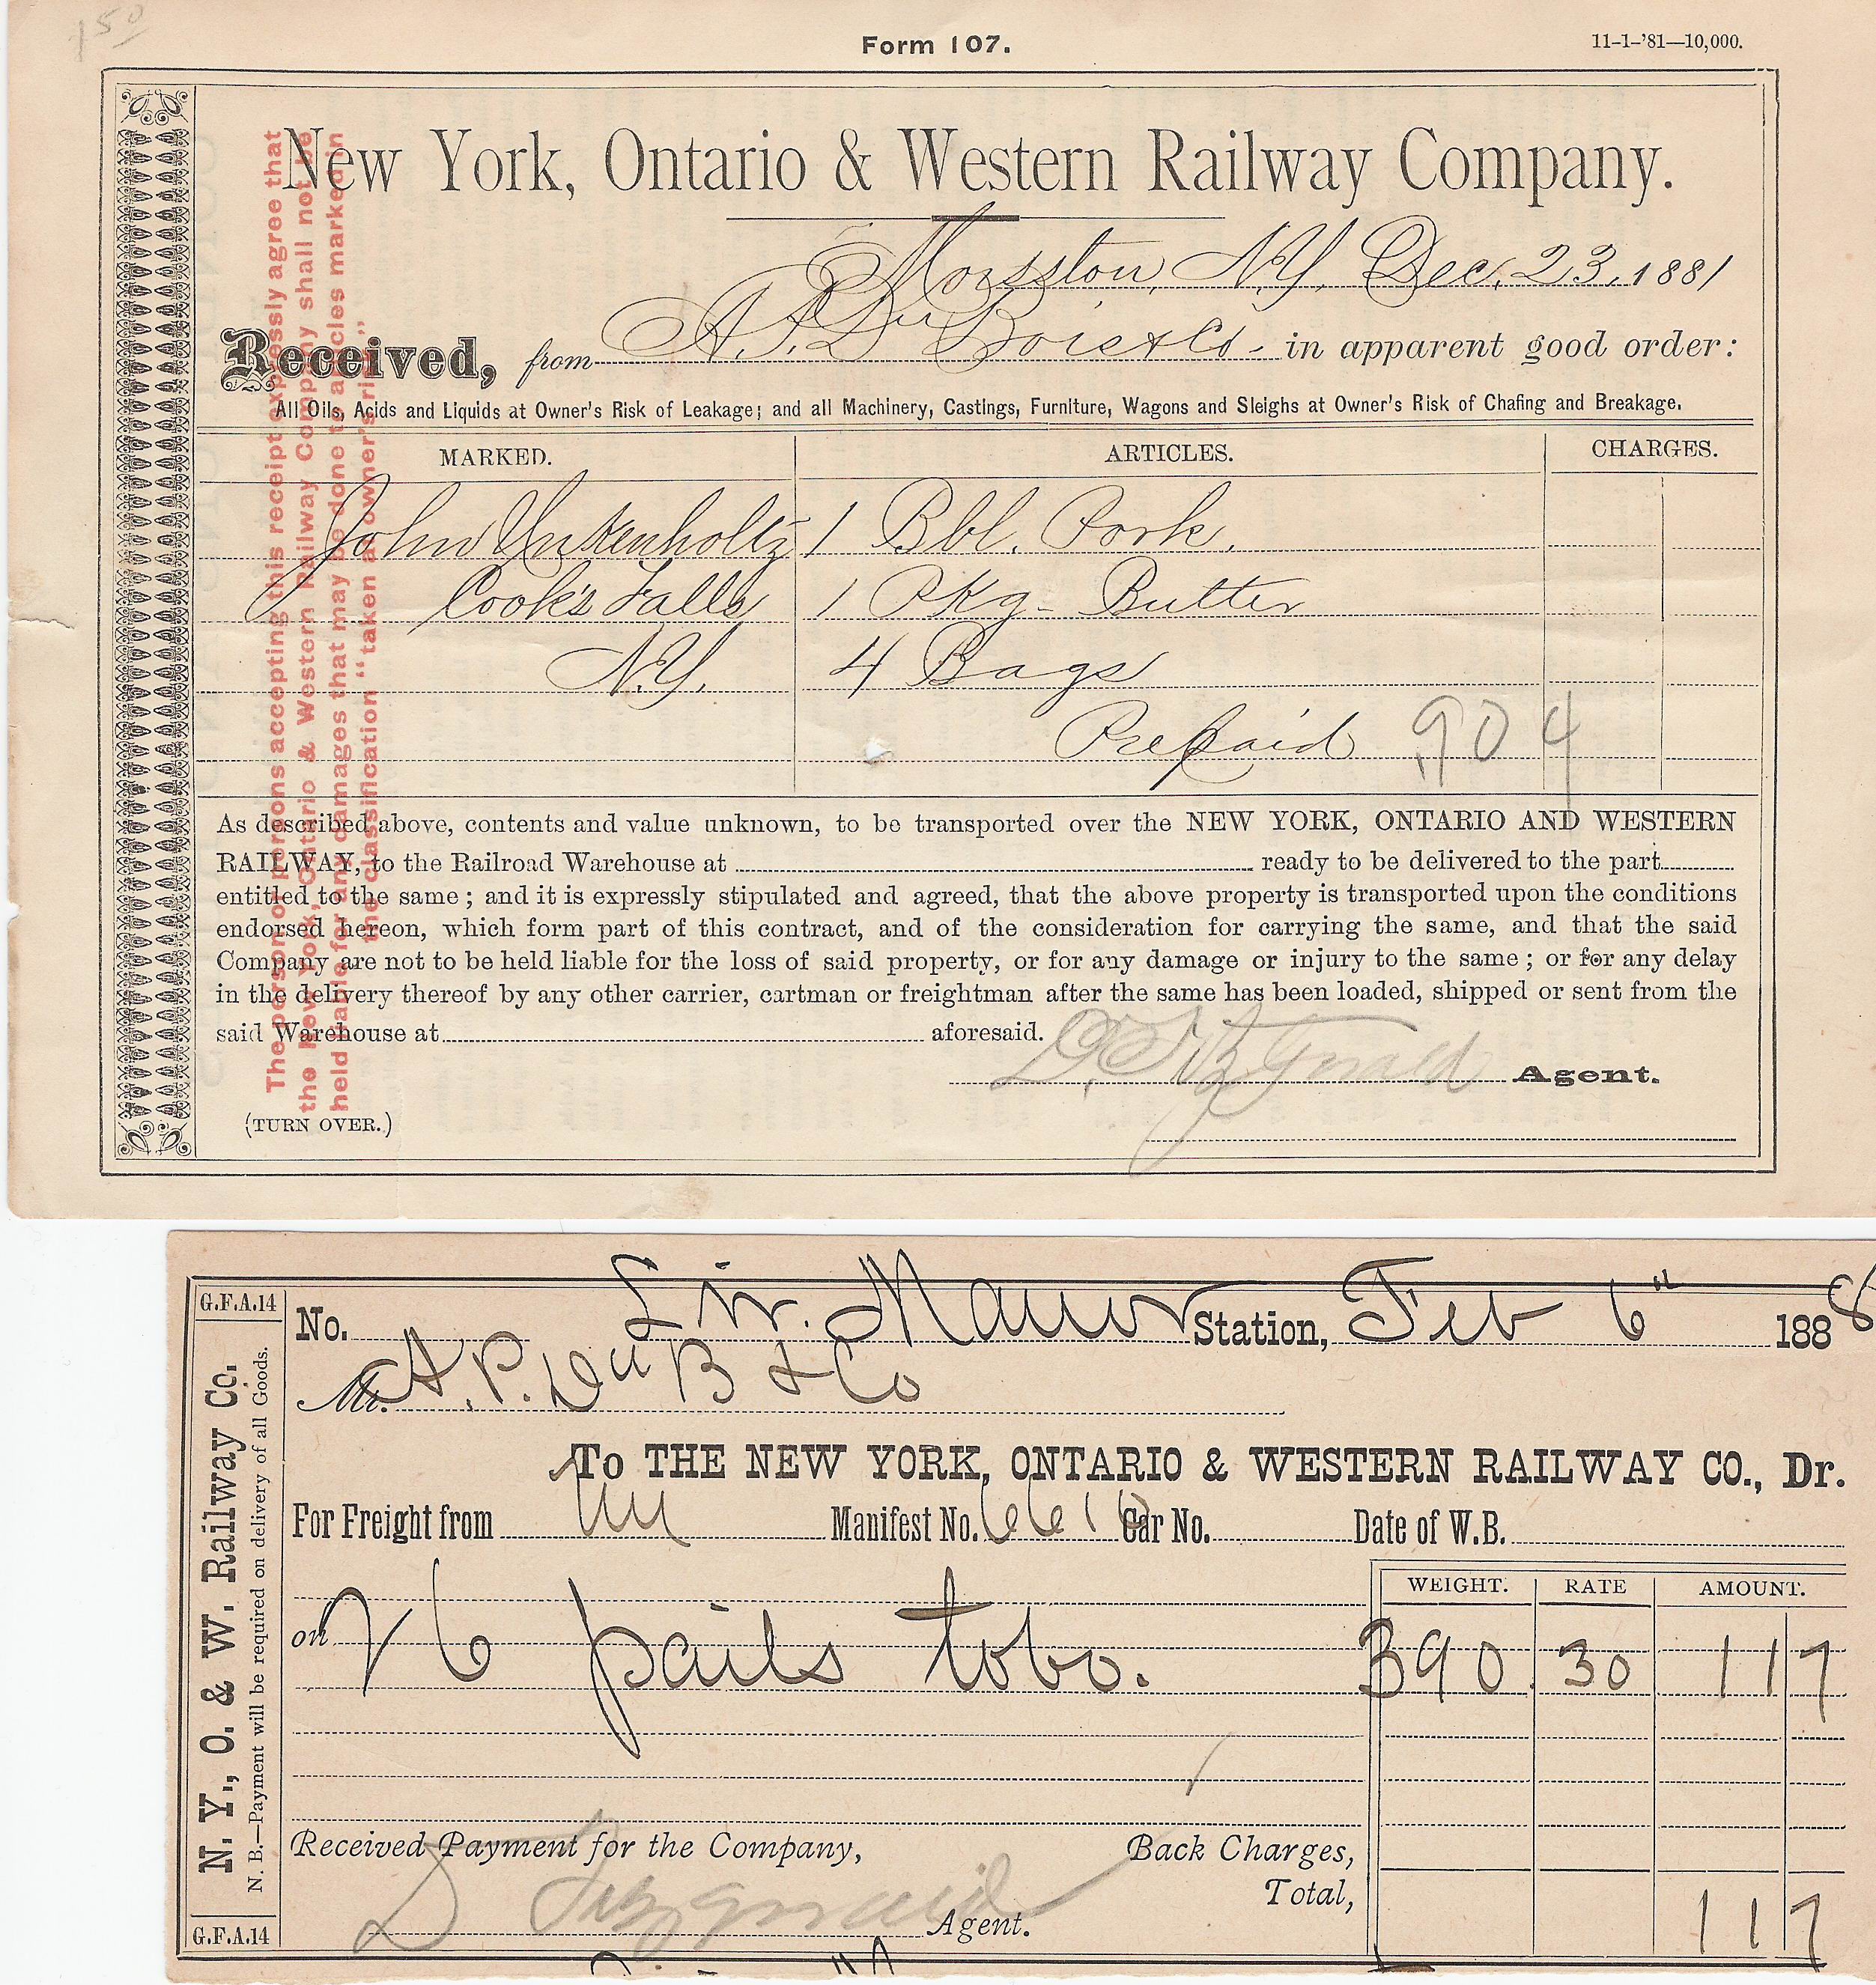 1 50
Form 107.
11-1-'81—10,000.
New York, Ontario & Western Railway Company.
Morsston, N.Y. Dec. 23, 1881
Received, from A. P. DuBois & Co. in apparent good order:
All Oils, Acids and Liquids at Owner's Risk of Leakage; and all Machinery, Castings, Furniture, Wagons and Sleighs at Owner's Risk of Chafing and Breakage.
MARKED. ARTICLES. CHARGES.
John Inkenholtz 1 Bbl. Pork.
Cook's Falls 1 Pkg- Butter
N.Y. 4 Bags
Prepaid .90 4
As described above, contents and value unknown, to be transported over the NEW YORK, ONTARIO AND WESTERN
RAILWAY, to the Railroad Warehouse at ready to be delivered to the part
entitled to the same; and it is expressly stipulated and agreed, that the above property is transported upon the conditions
endorsed hereon, which form part of this contract, and of the consideration for carrying the same, and that the said
Company are not to be held liable for the loss of said property, or for any damage or injury to the same; or for any delay
in the delivery thereof by any other carrier, cartman or freightman after the same has been loaded, shipped or sent from the
said Warehouse at aforesaid.
D. Fitzgerald Agent.
(TURN OVER.)
The person or persons accepting this receipt expressly agree that
the New York, Ontario & Western Railway Company shall not be
held liable for any damages that may be done to articles marked in
the classification "taken at owner's risk."
G.F.A.14
N. Y., O. & W. Railway Co.
N. B.—Payment will be required on delivery of all Goods.
G.F.A.14
No. Liv. Manor Station, Feb 6" 1888
Mr. A. P. Du B & Co
To THE NEW YORK, ONTARIO & WESTERN RAILWAY CO., Dr.
For Freight from NY Manifest No. 6610 Car No. Date of W.B.
WEIGHT. RATE AMOUNT.
on 26 pails tobo. 390 30 1 17
Received Payment for the Company, Back Charges,
Total, 1 17
D Fitzgerald Agent.